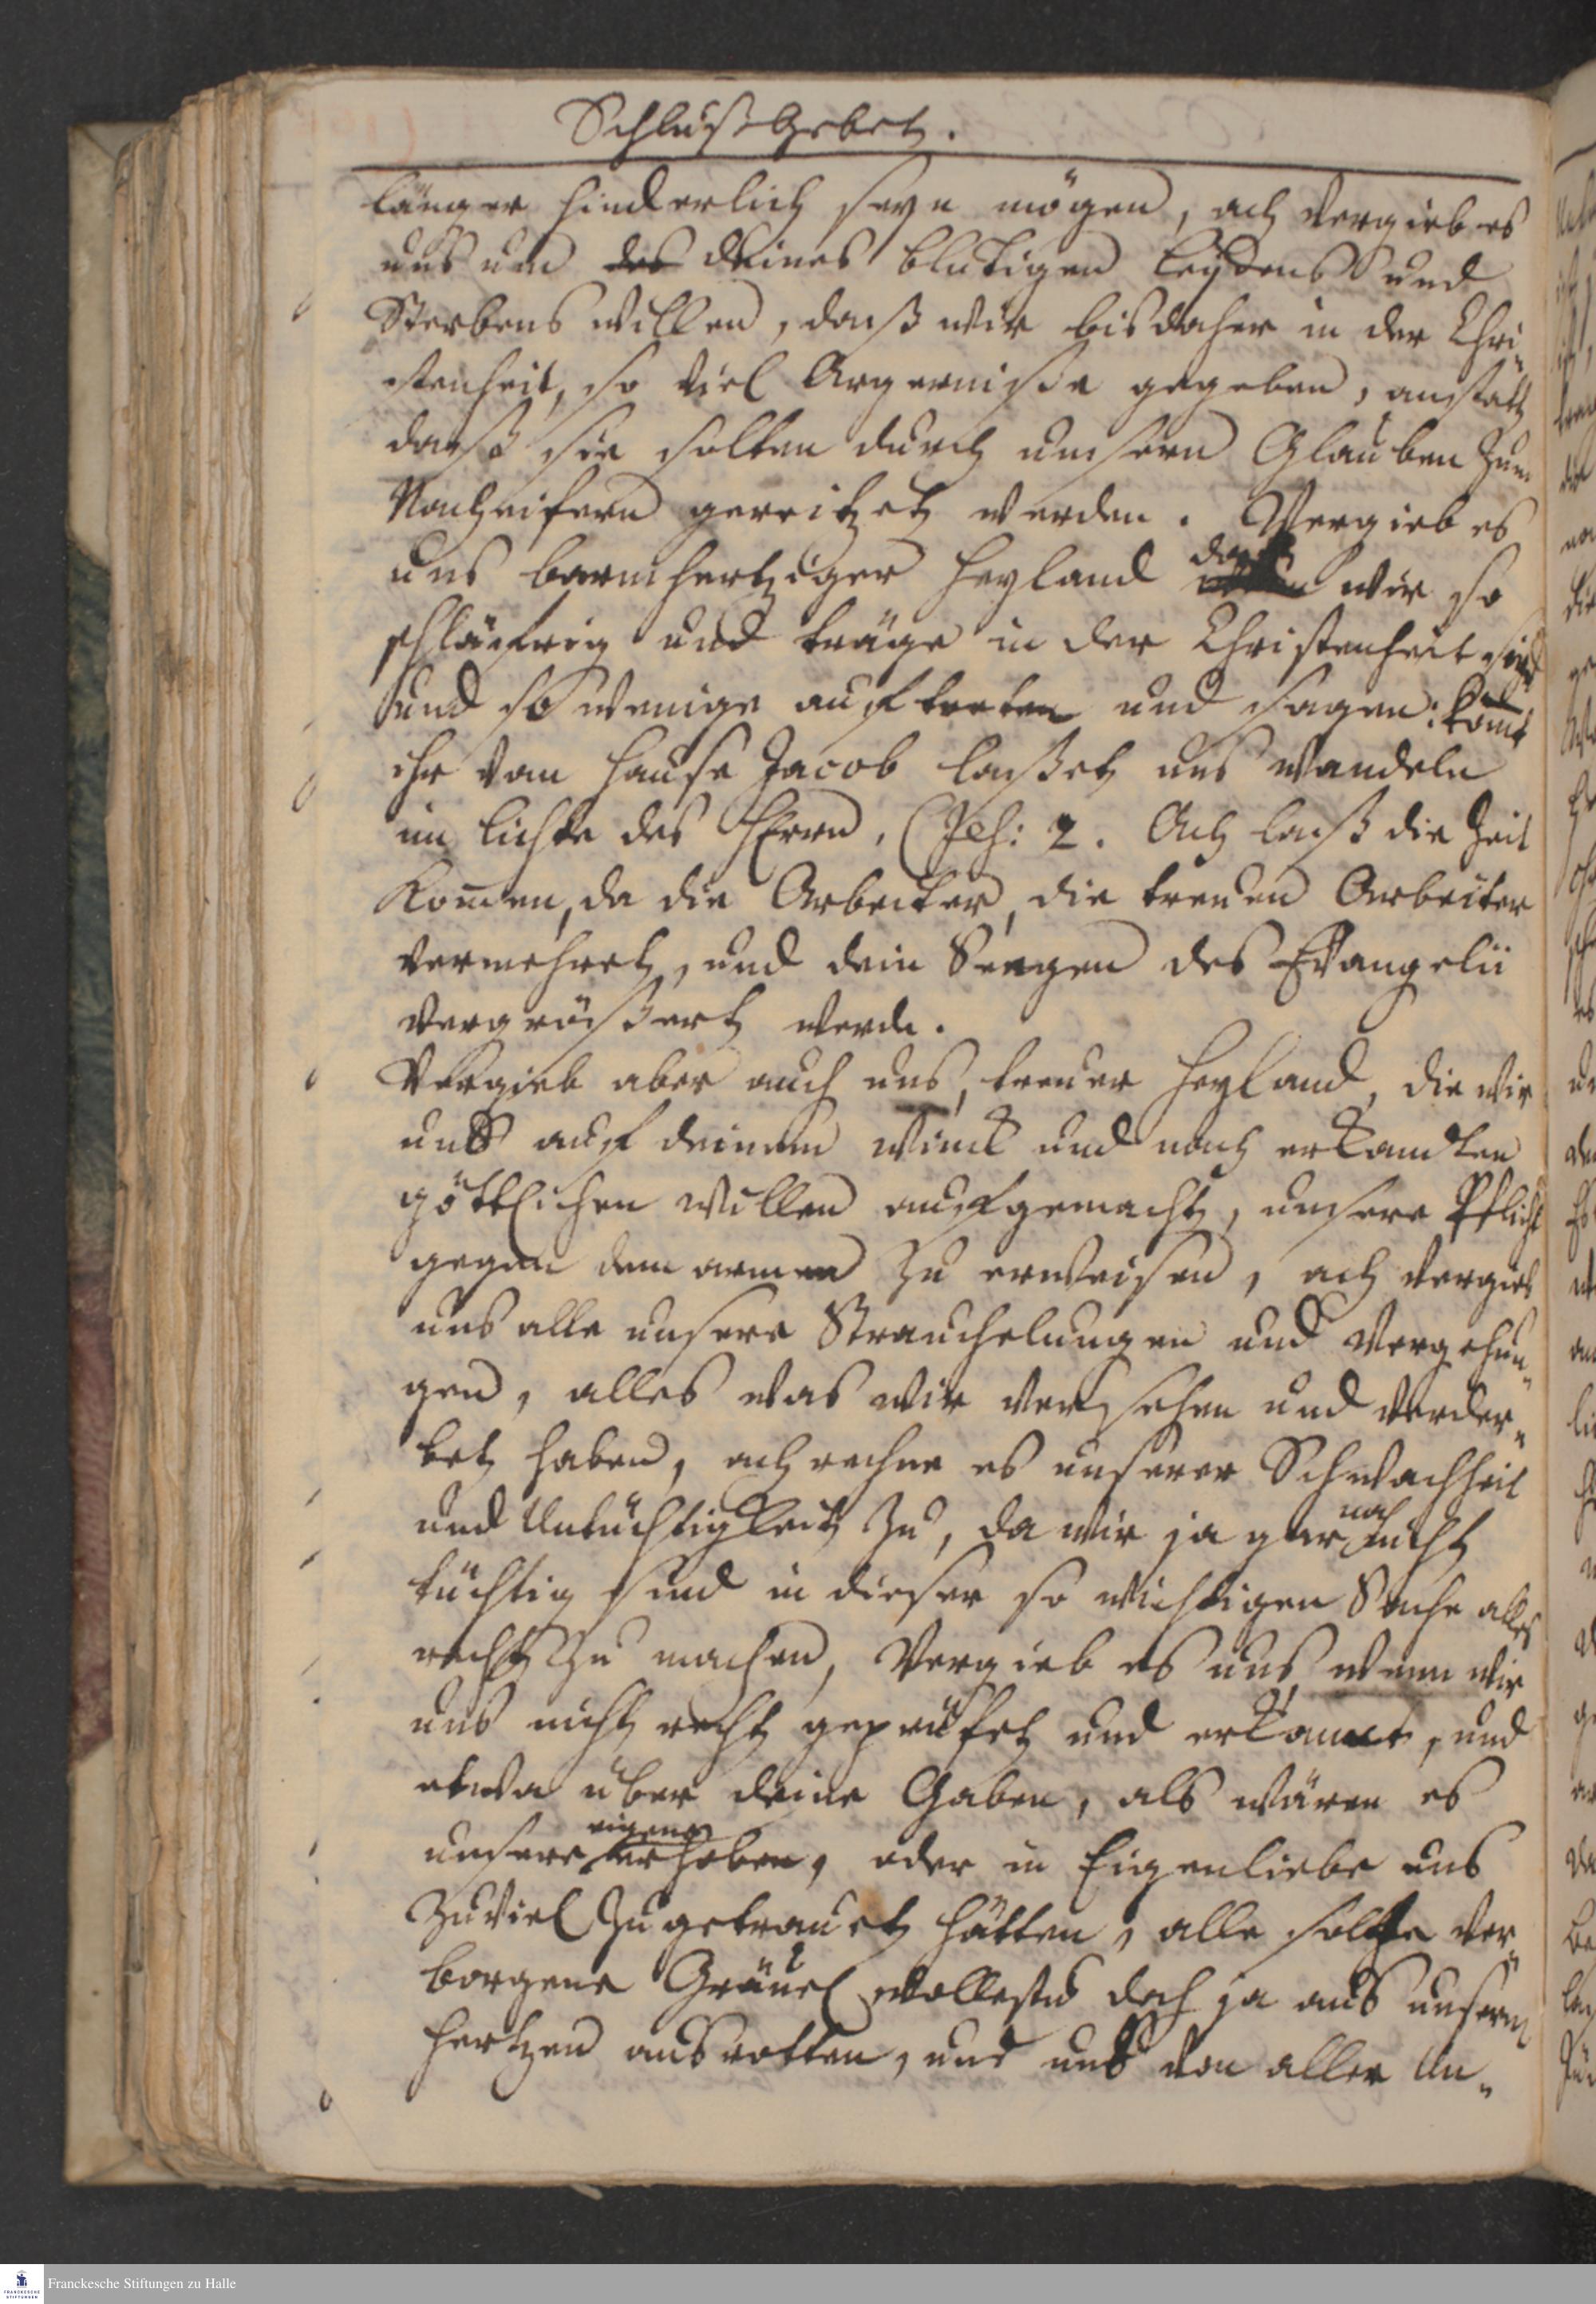 Schluß Gebet.
länger hinderlich seyn mögen, ach vergieb es
uns um des deines blutigen Leydens und
Sterbens willen, daß wir bis daher in der Chri„
stenheit, so viel Ärgerniße gegeben, anstatt
daß sie solten durch unsern Glauben zum
Nacheifern gereitzet werden. Vergieb es
uns barmhertziger Heyland daß wir so
schläfrig und träge in der Christenheit sind
und so wenige auftreten und sagen: komt
ihr vom Hause Jacob laßet uns wandeln
im Lichte des HErrn, (Jes: 2. Ach laß die Zeit
kommen, da die Arbeiter, die treuen Arbeiter
vermehret, und dein Seegen des Evangelii
vergrößert werde.
Vergieb aber auch uns, treuer Heyland, die wir
uns auf deinem Winck und nach erkandten
göttlichen Willen aufgemacht, unsere Pflicht
gegen dem armen zu erweisen, ach vergieb
uns alle unsere Strauchelungen und Vergehun„
gen, alles was wir versehen und verder„
bet haben, ach rechne es unserer Schwachheit
und Untüchtigkeit zu, da wir ja gar noch nicht
tüchtig sind in dieser so wichtigen Sache alles
recht zu machen, Vergieb es uns, wenn wir
uns nicht recht geprüfet und erkannt, und
etwa über deine Gaben, als wären es
unsere eigene erhoben, oder in Eigenliebe uns
zuviel zugetrauet hätten, alle solche ver„
borgene Gräuel wollestu doch ja aus unsern
Hertzen ausrotten, und uns von aller Un„
Franckesche Stiftungen zu Halle